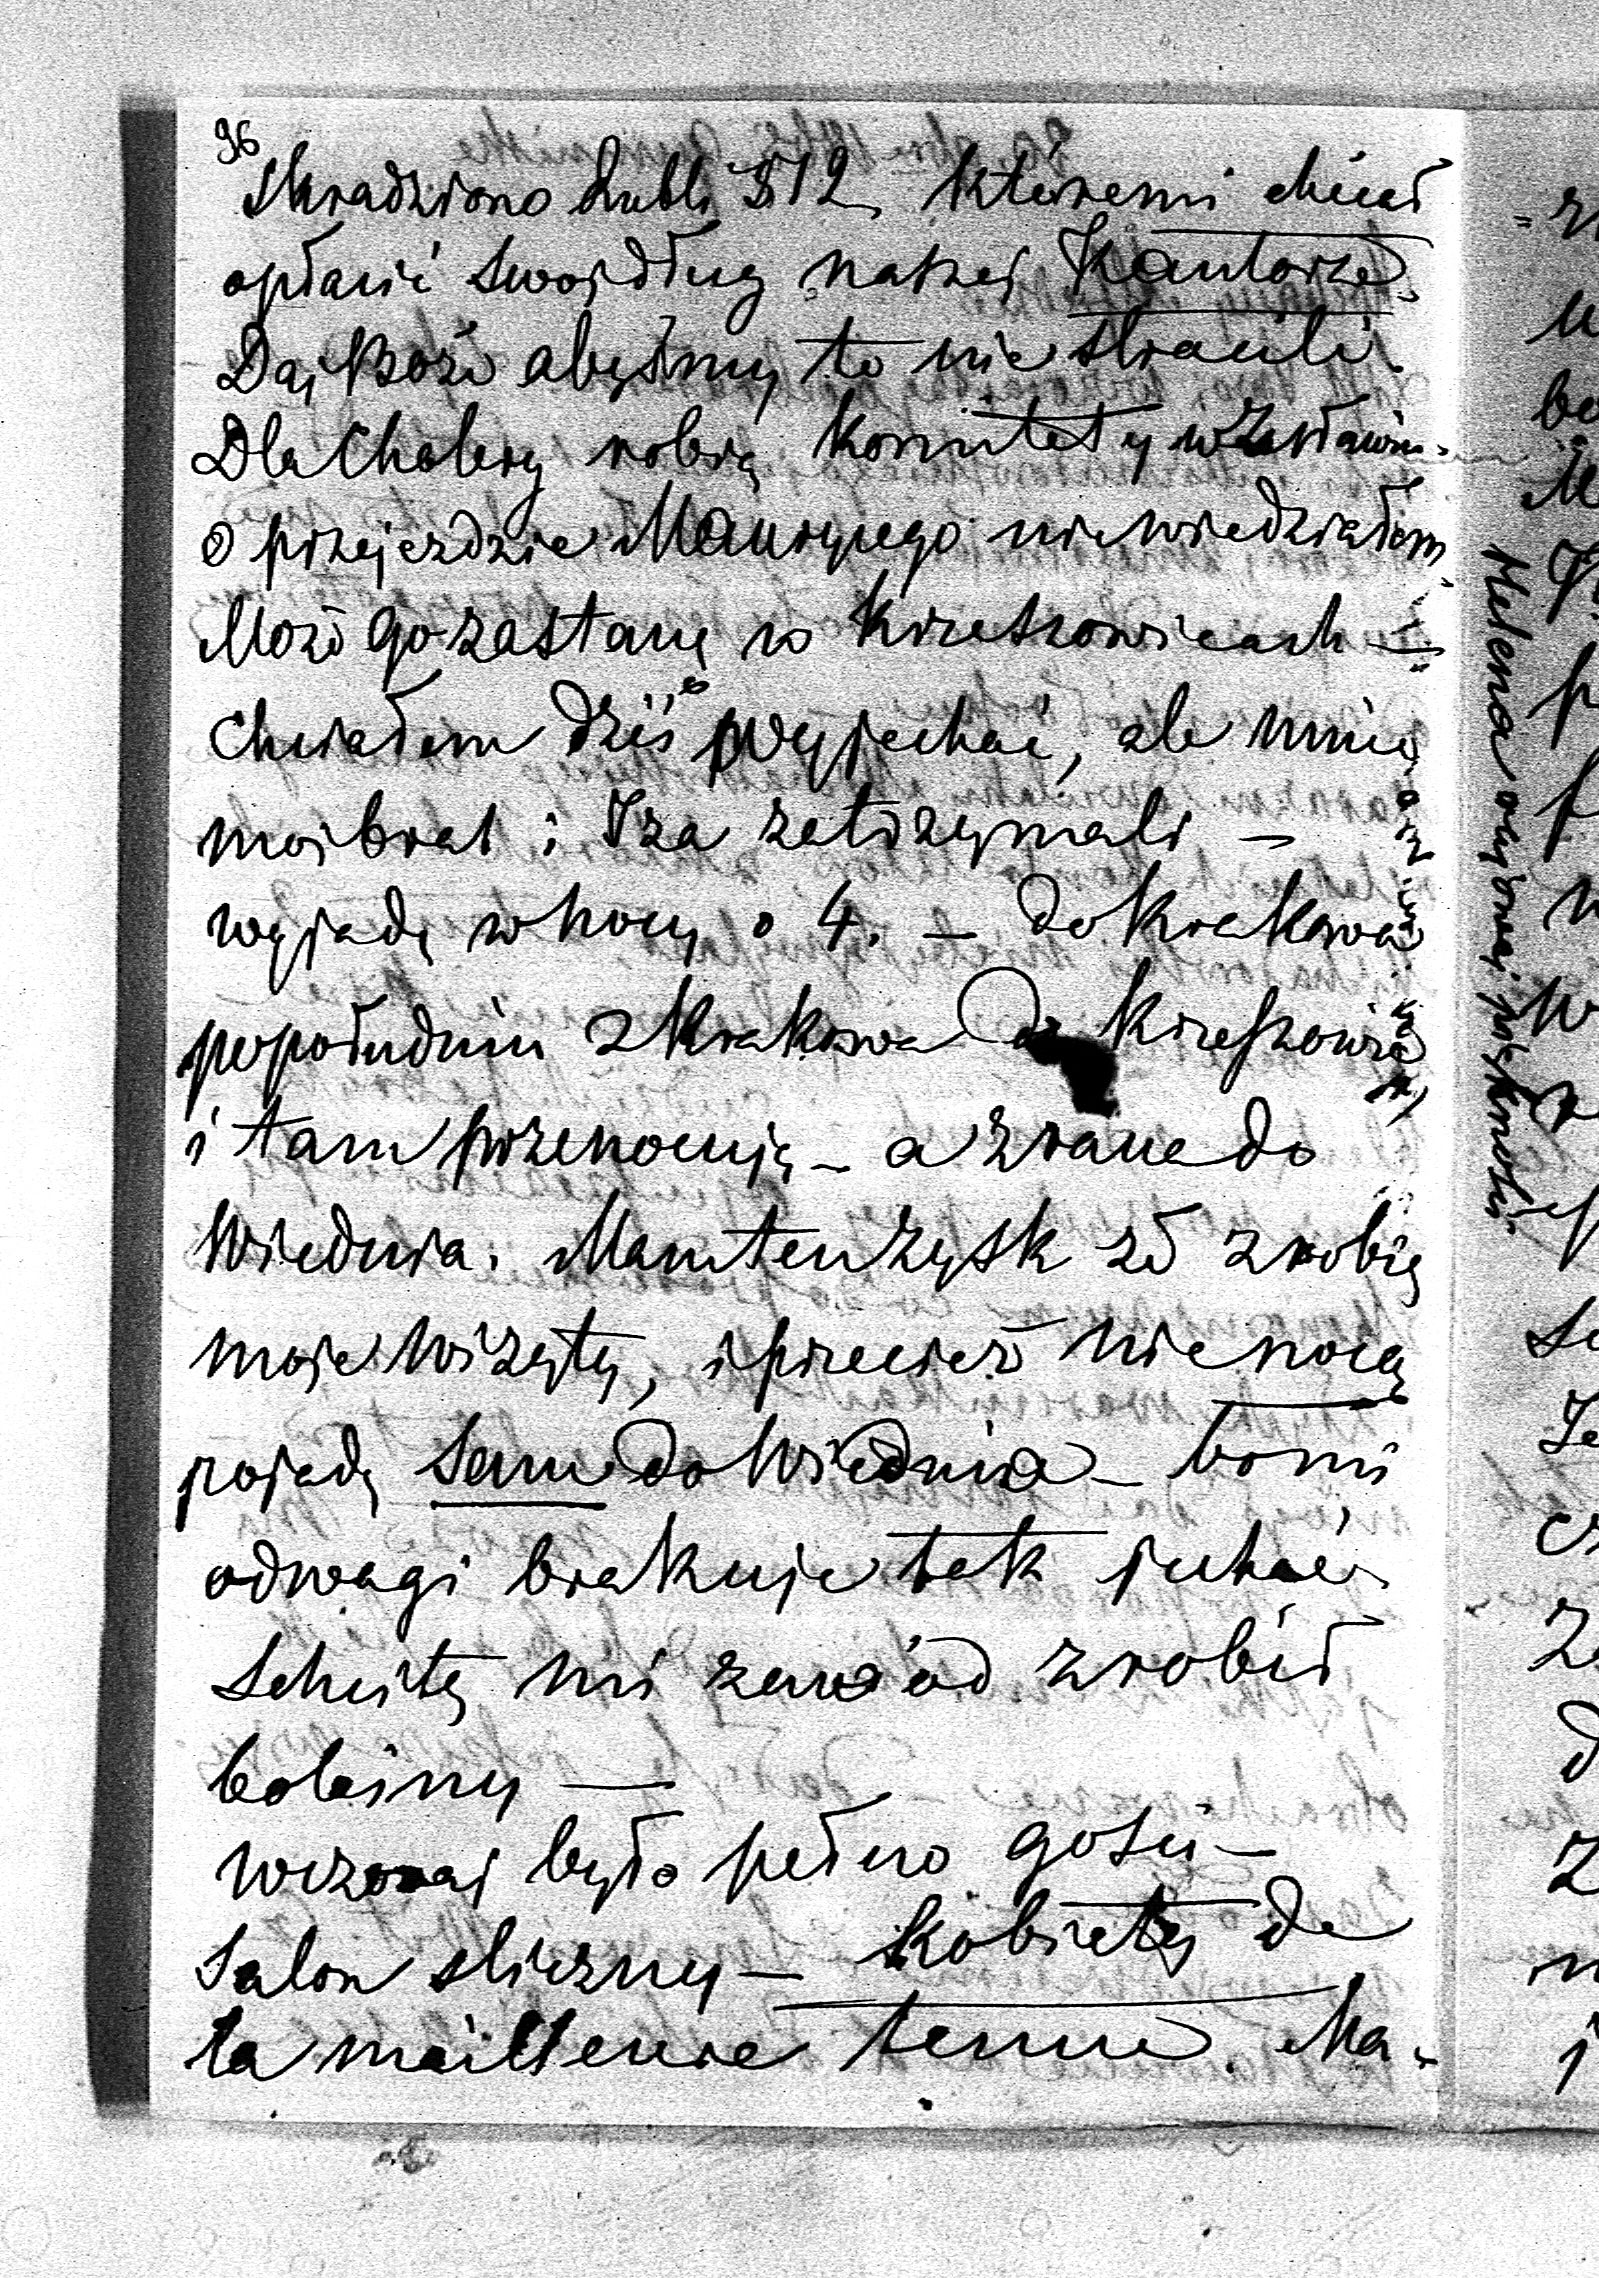 96
Skradziono Rubli 512, któremi chciał
opłacić swój dług naszej Kantorze.
Daj Boże abyśmy to nie stracili
Dla Cholery robią komitety
o przejezdzie Maurycego nie wiedziałem
Może go zastanę w Krzeszowicach —
Chciałem dziś wyjechać, ale mnie
moj brat i Iza zatrzymali —
wyjadę w nocy o 4. — do Krakowa
popołudniu z Krakowa do Krzeszowic
i tam przenocuję — a z rana do
Wiednia. Mam ten zysk że zrobię
moje wizyty, i przecież nie nocą
pojadę sam do Wiednia — bo mi
odwagi brakuje tak jechać
Schejtę mi zawód zrobił
bolesny —
wczoraj było pełno gości —
Salon sliczny — Kobiety de
la meilleure tenue. Ma-
Helena